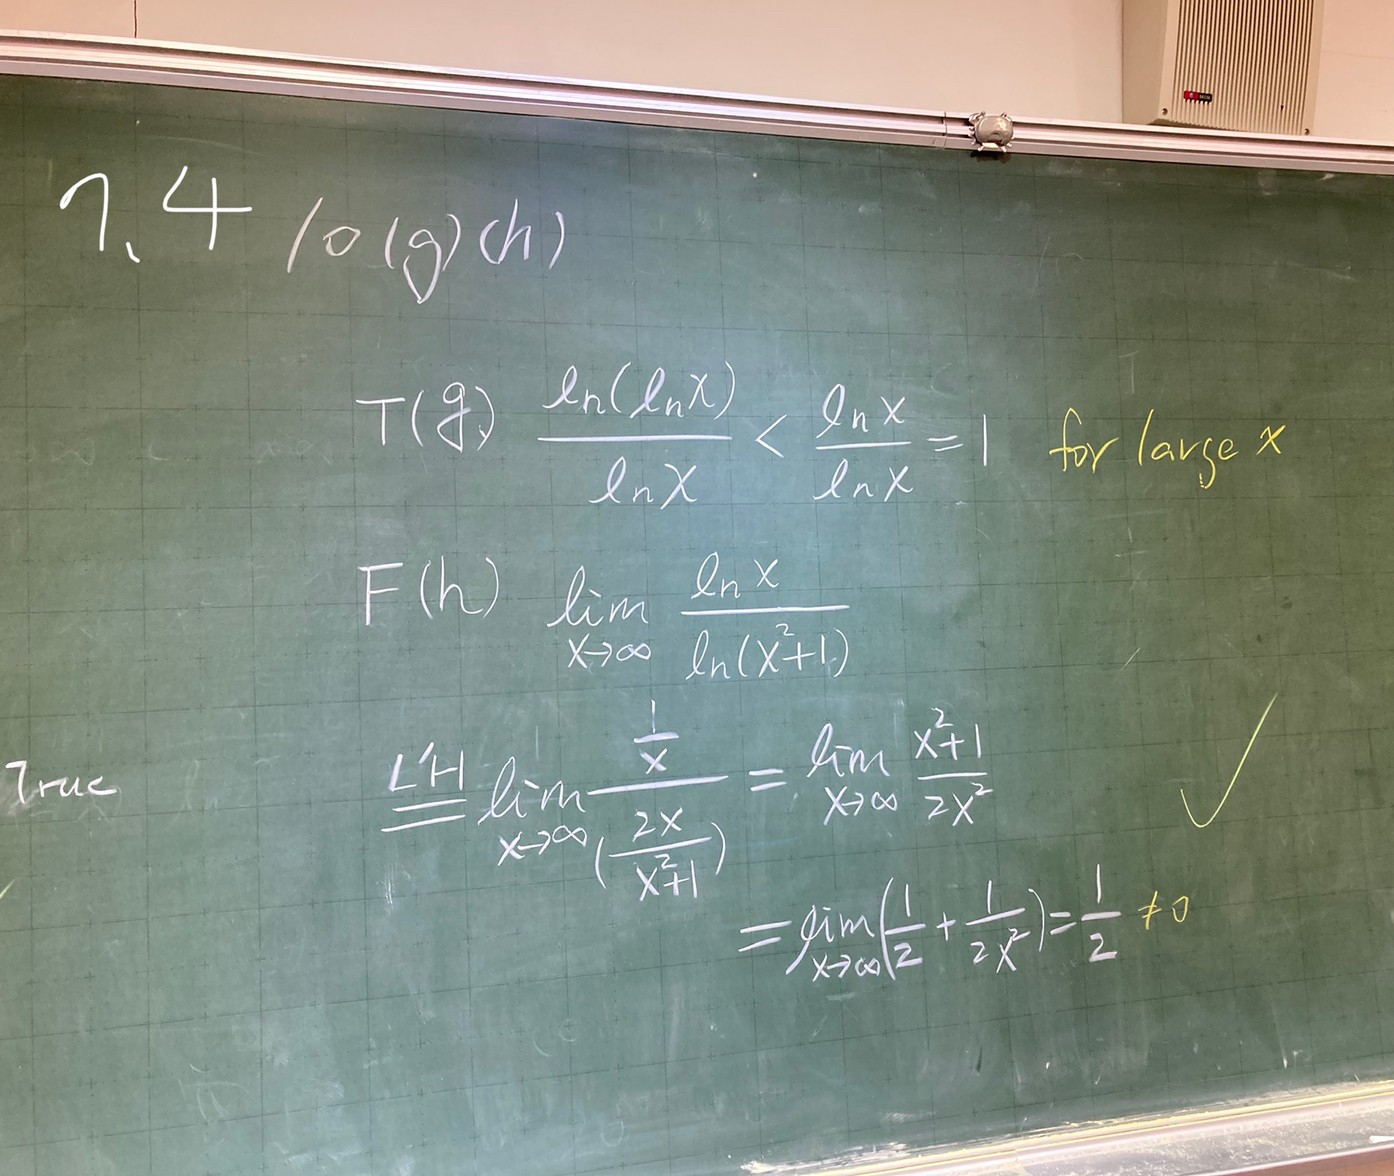 7.4 10 (g) (h)
T(g) ln(ln x)/ln x < ln x/ln x = 1 for large x
F(h) lim x→∞ ln x/ln(x²+1)
True
L'H = lim x→∞ (1/x)/(2x/(x²+1)) = lim x→∞ (x²+1)/(2x²) ✓
= lim x→∞ (1/2 + 1/(2x²)) = 1/2 ≠ 0